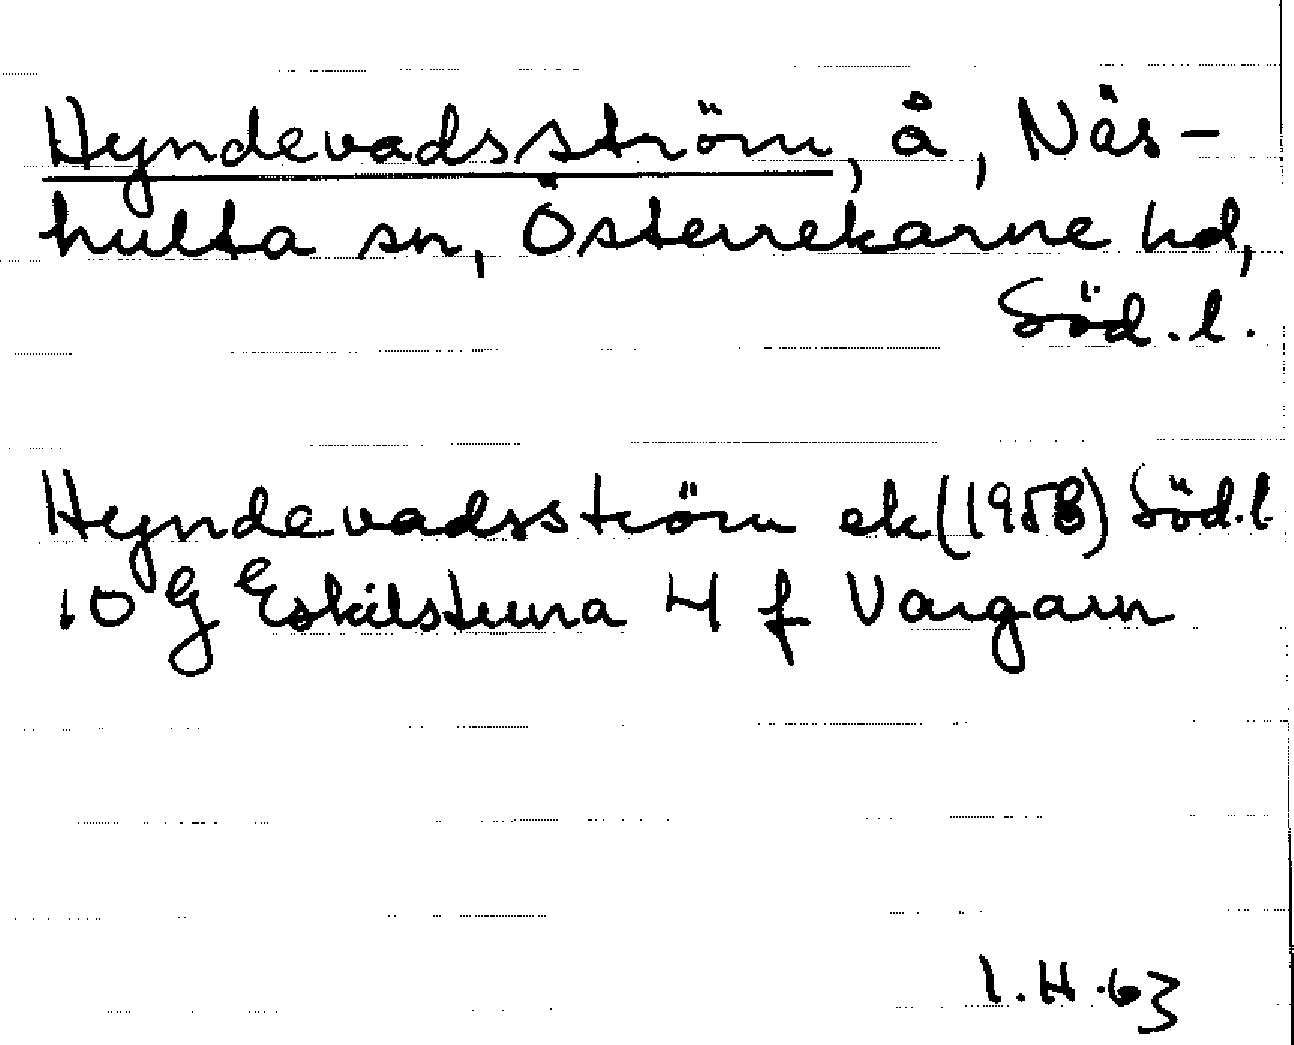 Hyndevadsström, å, Näs-
hulta sn, Österrekarne hd,
Söd. l.
Hyndevadsström ek (1958) Söd. l
10 G Eskilstuna 4 f Vargarn
I. H. 63